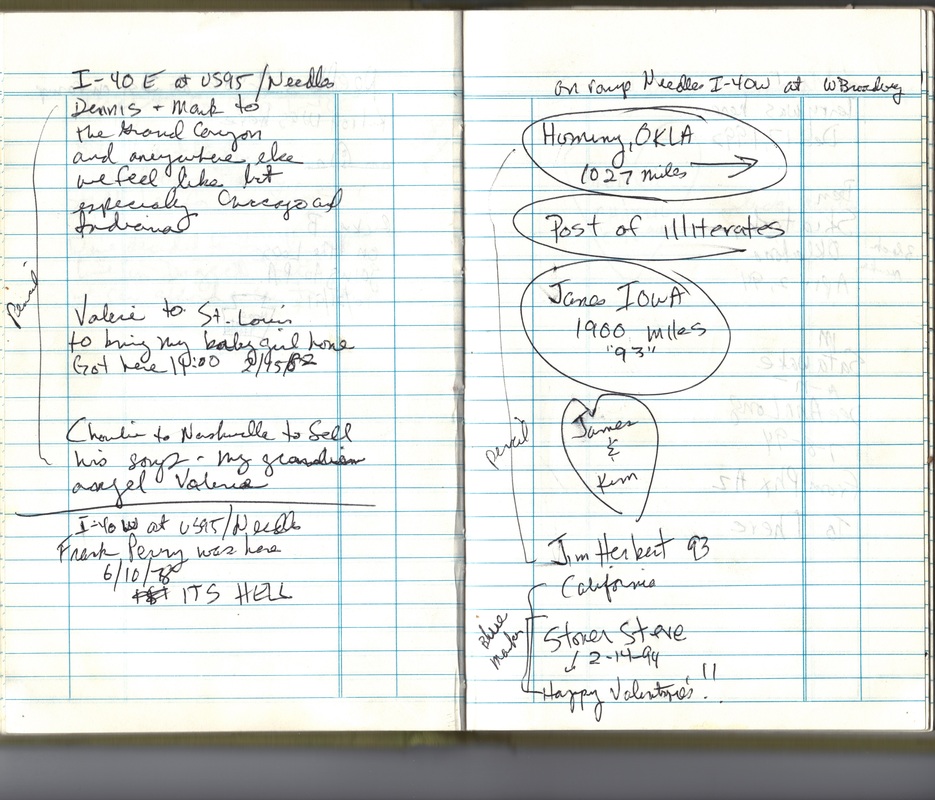 I-40 E at US95/Needles
Dennis + Mark to
the Grand Canyon
and anywhere else
we feel like but
especially Chicago and
Indiana
pencil
Valerie to St. Louis
to bring my baby girl home
Got here 19:00 2/15/82
Charlie to Nashville to Sell
his songs - my guardian
angel Valerie
I-40 W at US95/Needles
Frank Perry was here
6/10/78
ITS HELL
on ramp Needles I-40W at W Broadway
Hominy, OKLA
1027 miles
Post of illiterates
Janes IOWA
1900 miles
"93"
James
&
Kim
pencil
Jim Herbert 93
California
Blue
marker
Stoner Steve
2-14-94
Happy Valentine's!!